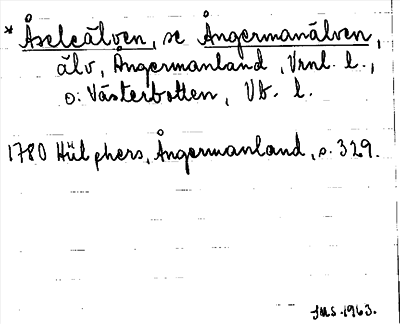 * Åseleälven, se Ångermanälven,
älv, Ångermanland, Vrnl. l.,
o. Västerbotten, Vb. l.
1780 Hülphers, Ångermanland, s. 329.
JMS. 1963.